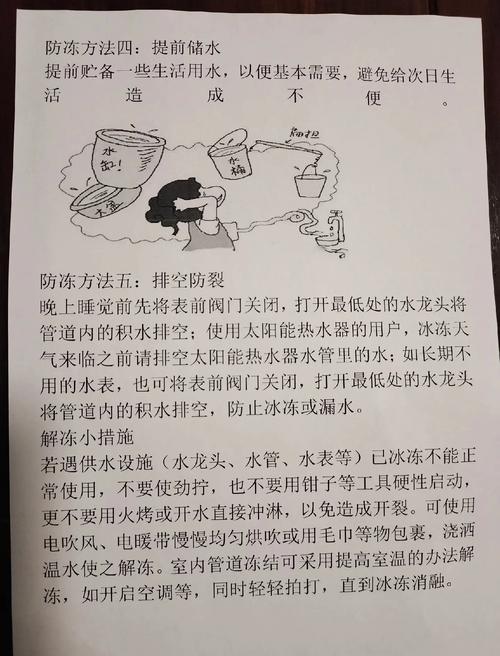 防冻方法四：提前储水
提前贮备一些生活用水，以便基本需要，避免给次日生
活造成不便。
水
缸！
水桶
水盆
扁担
防冻方法五：排空防裂
晚上睡觉前先将表前阀门关闭，打开最低处的水龙头将
管道内的积水排空；使用太阳能热水器的用户，冰冻天
气来临之前请排空太阳能热水器水管里的水；如长期不
用的水表，也可将表前阀门关闭，打开最低处的水龙头
将管道内的积水排空，防止冰冻或漏水。
解冻小措施
若遇供水设施（水龙头、水管、水表等）已冰冻不能正
常使用，不要使劲拧，也不要用钳子等工具硬性启动，
更不要用火烤或开水直接冲淋，以免造成开裂。可使用
电吹风、电暖带慢慢均匀烘吹或用毛巾等物包裹，浇洒
温水使之解冻。室内管道冻结可采用提高室温的办法解
冻，如开启空调等，同时轻轻拍打，直到冰冻消融。